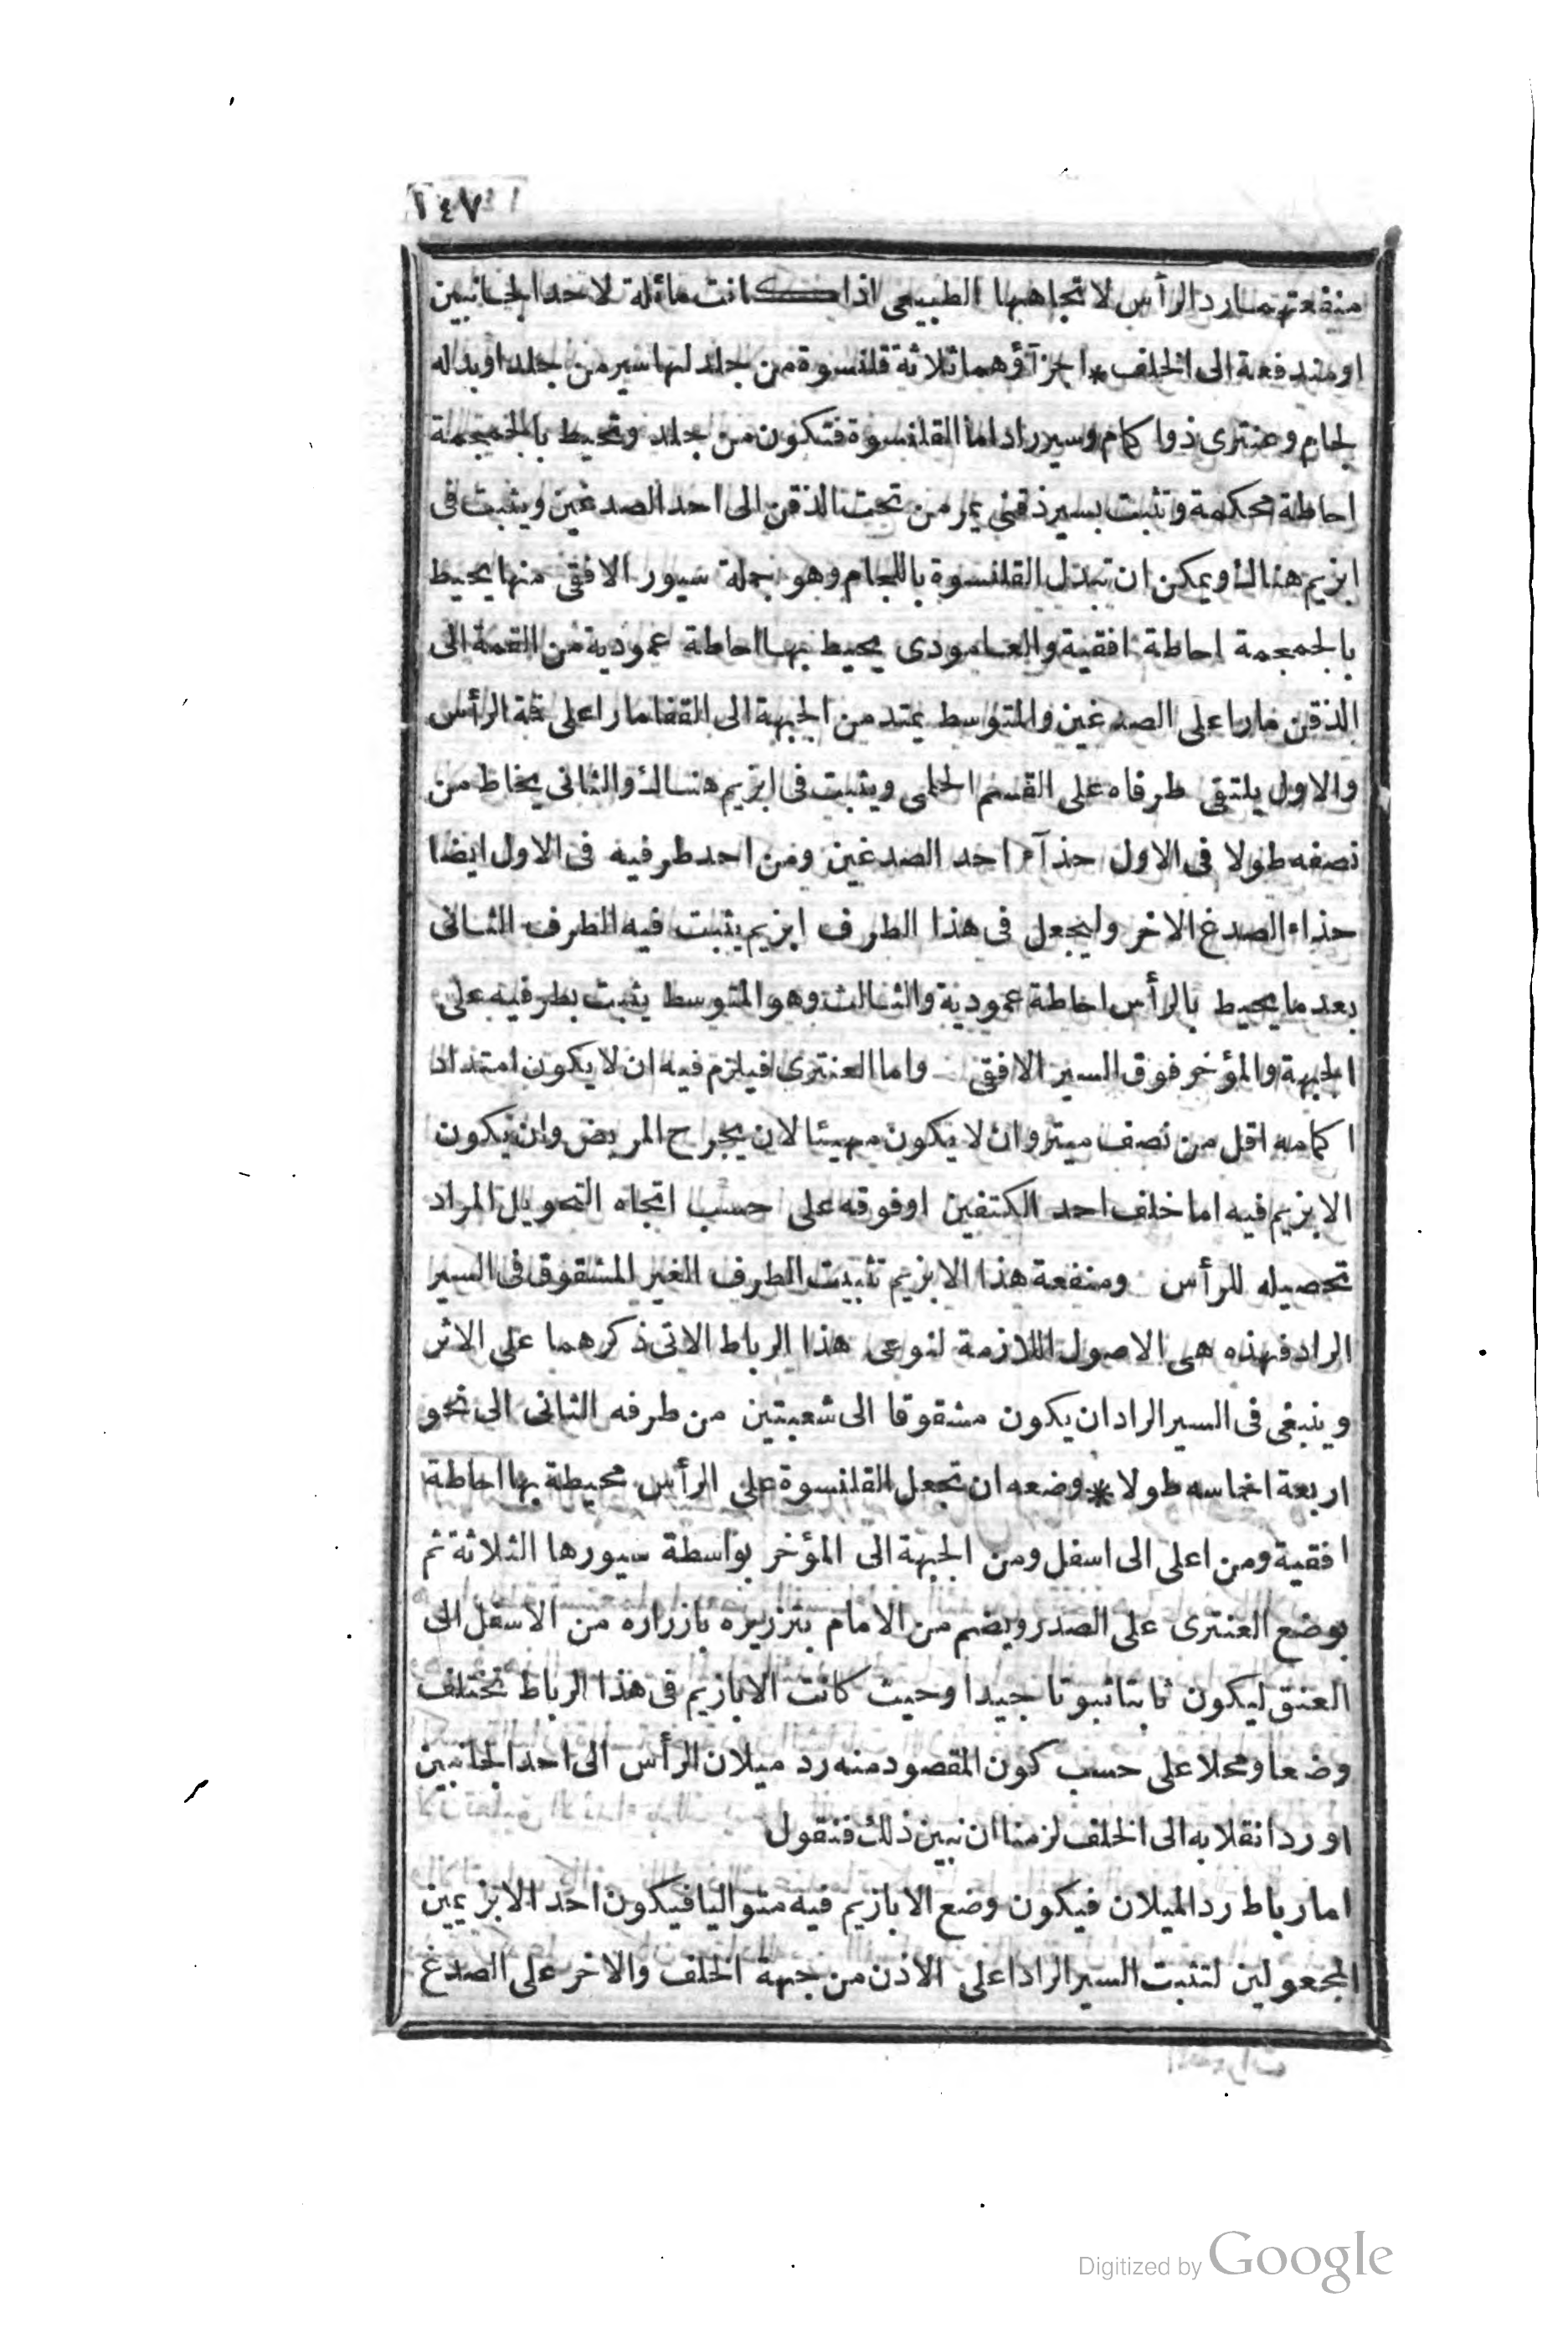 ١٤٧
منفعتهما رد الرأس لاتجاهها الطبيعى اذا كانت مائلة لاحد الجانبين
او مندفعة الى الخلف * اجزآؤهما ثلاثة قلنسوة من جلد لها سير من جلد او بدله
لجام وعنترى ذو اكمام وسير راد اما القلنسوة فتكون من جلد وتحيط بالجمجمة
احاطة محكمة وتثبت بسير ذقنى يمر من تحت الذقن الى احد الصدغين ويثبت فى
ابزيم هناك ويمكن ان تبدل القلنسوة باللجام وهو جملة سيور الافقى منها يحيط
بالجمجمة احاطة افقية والعامودى يحيط بها احاطة عمودية من القمة الى
الذقن مارا على الصدغين والمتوسط يمتد من الجبهة الى القفا مارا على قمة الرأس
والاول يلتقى طرفاه على القسم الحلمى ويثبت فى ابزيم هناك والثانى يخاط من
نصفه طولا فى الاول حذآء احد الصدغين ومن احد طرفيه فى الاول ايضا
حذاء الصدغ الاخر وليجعل فى هذا الطرف ابزيم يثبت فيه الطرف الثانى
بعد ما يحيط بالرأس احاطة عمودية والثالث وهو المتوسط يثبت بطرفيه على
الجبهة والمؤخر فوق السير الافقى واما العنترى فيلزم فيه ان لا يكون امتداد
اكمامه اقل من نصف ميتر وان لا يكون مهيئا لان يجرح المريض وان يكون
الابزيم فيه اما خلف احد الكتفين او فوقه على حسب اتجاه التحويل المراد
تحصيله للرأس ومنفعة هذا الابزيم تثبيت الطرف الغير المشقوق فى السير
الراد فهذه هى الاصول اللازمة لنوعى هذا الرباط الاتى ذكرهما على الاثر
وينبغى فى السير الراد ان يكون مشقوقا الى شعبتين من طرفه الثانى الى نحو
اربعة اخماسه طولا * وضعه ان تجعل القلنسوة على الرأس محيطة بها احاطة
افقية ومن اعلى الى اسفل ومن الجبهة الى المؤخر بواسطة سيورها الثلاثة ثم
يوضع العنترى على الصدر ويضم من الامام بتزريره بازراره من الاسفل الى
العنق ليكون ثابتا ثبوتا جيدا وحيث كانت الابازيم فى هذا الرباط تختلف
وضعا ومحلا على حسب كون المقصود منه رد ميلان الرأس الى احد الجانبين
او رد انقلابه الى الخلف لزمنا ان نبين ذلك فنقول
اما رباط رد الميلان فيكون وضع الابازيم فيه متواليا فيكون احد الابزيمين
المجعولين لتثبت السير الراد اعلى الاذن من جهة الخلف والاخر على الصدغ
Digitized by Google